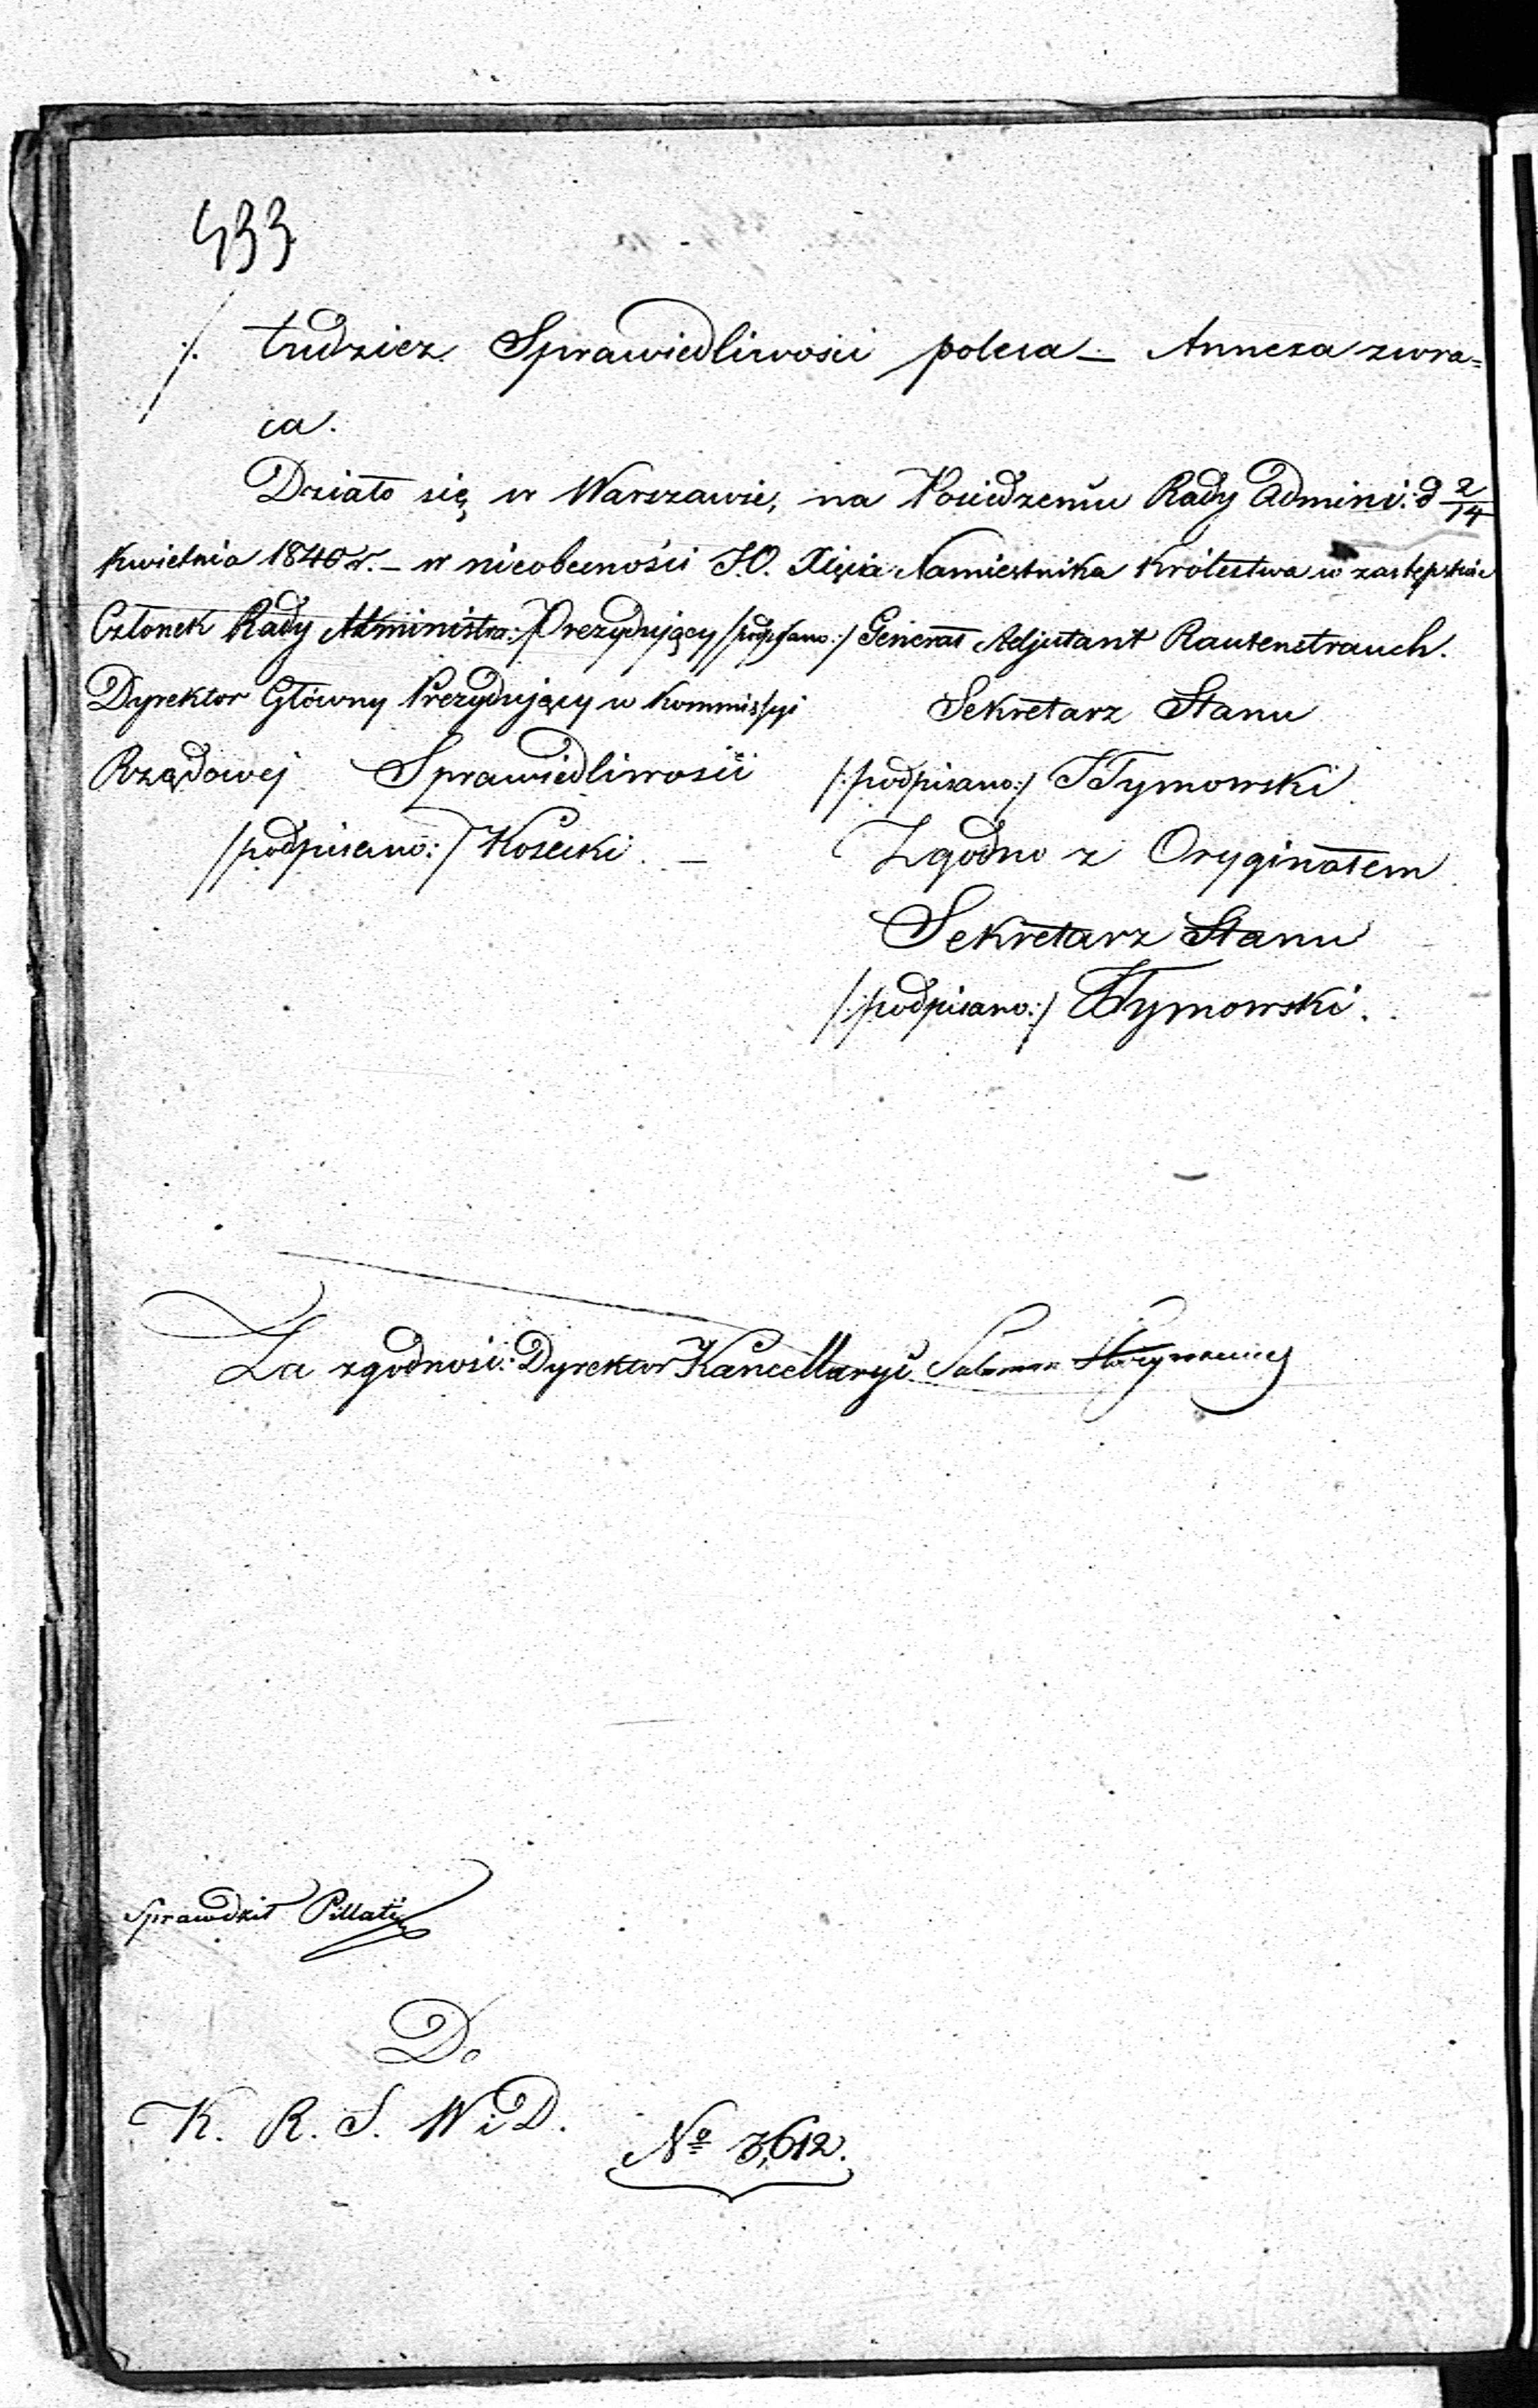 433
./. tudzież Sprawiedliwości poleca — Annexa zwra=
ca.
Działo się w Warszawie, na Posiedzeniu Rady Admini: d 2/14
Kwietnia 1840 r. — w nieobecności J.O. Xięcia Namiestnika Królestwa w zastępstwie
Członek Rady Administra: Prezydujący /podpisano:/ Generał Adjutant Rautenstrauch.
Dyrektor Główny Prezydujący w Kommissyi
Rządowej Sprawiedliwości
/podpisano:/ Kosecki. —
Sekretarz Stanu
/:podpisano:/ J Tymowski
Zgodno z Oryginałem
Sekretarz Stanu
/:podpisano:/ J Tymowski.
Za zgodność: Dyrektor Kancellaryi
Sprawdził Pillati
Do
K. R. S. W i D.
No 3,612.